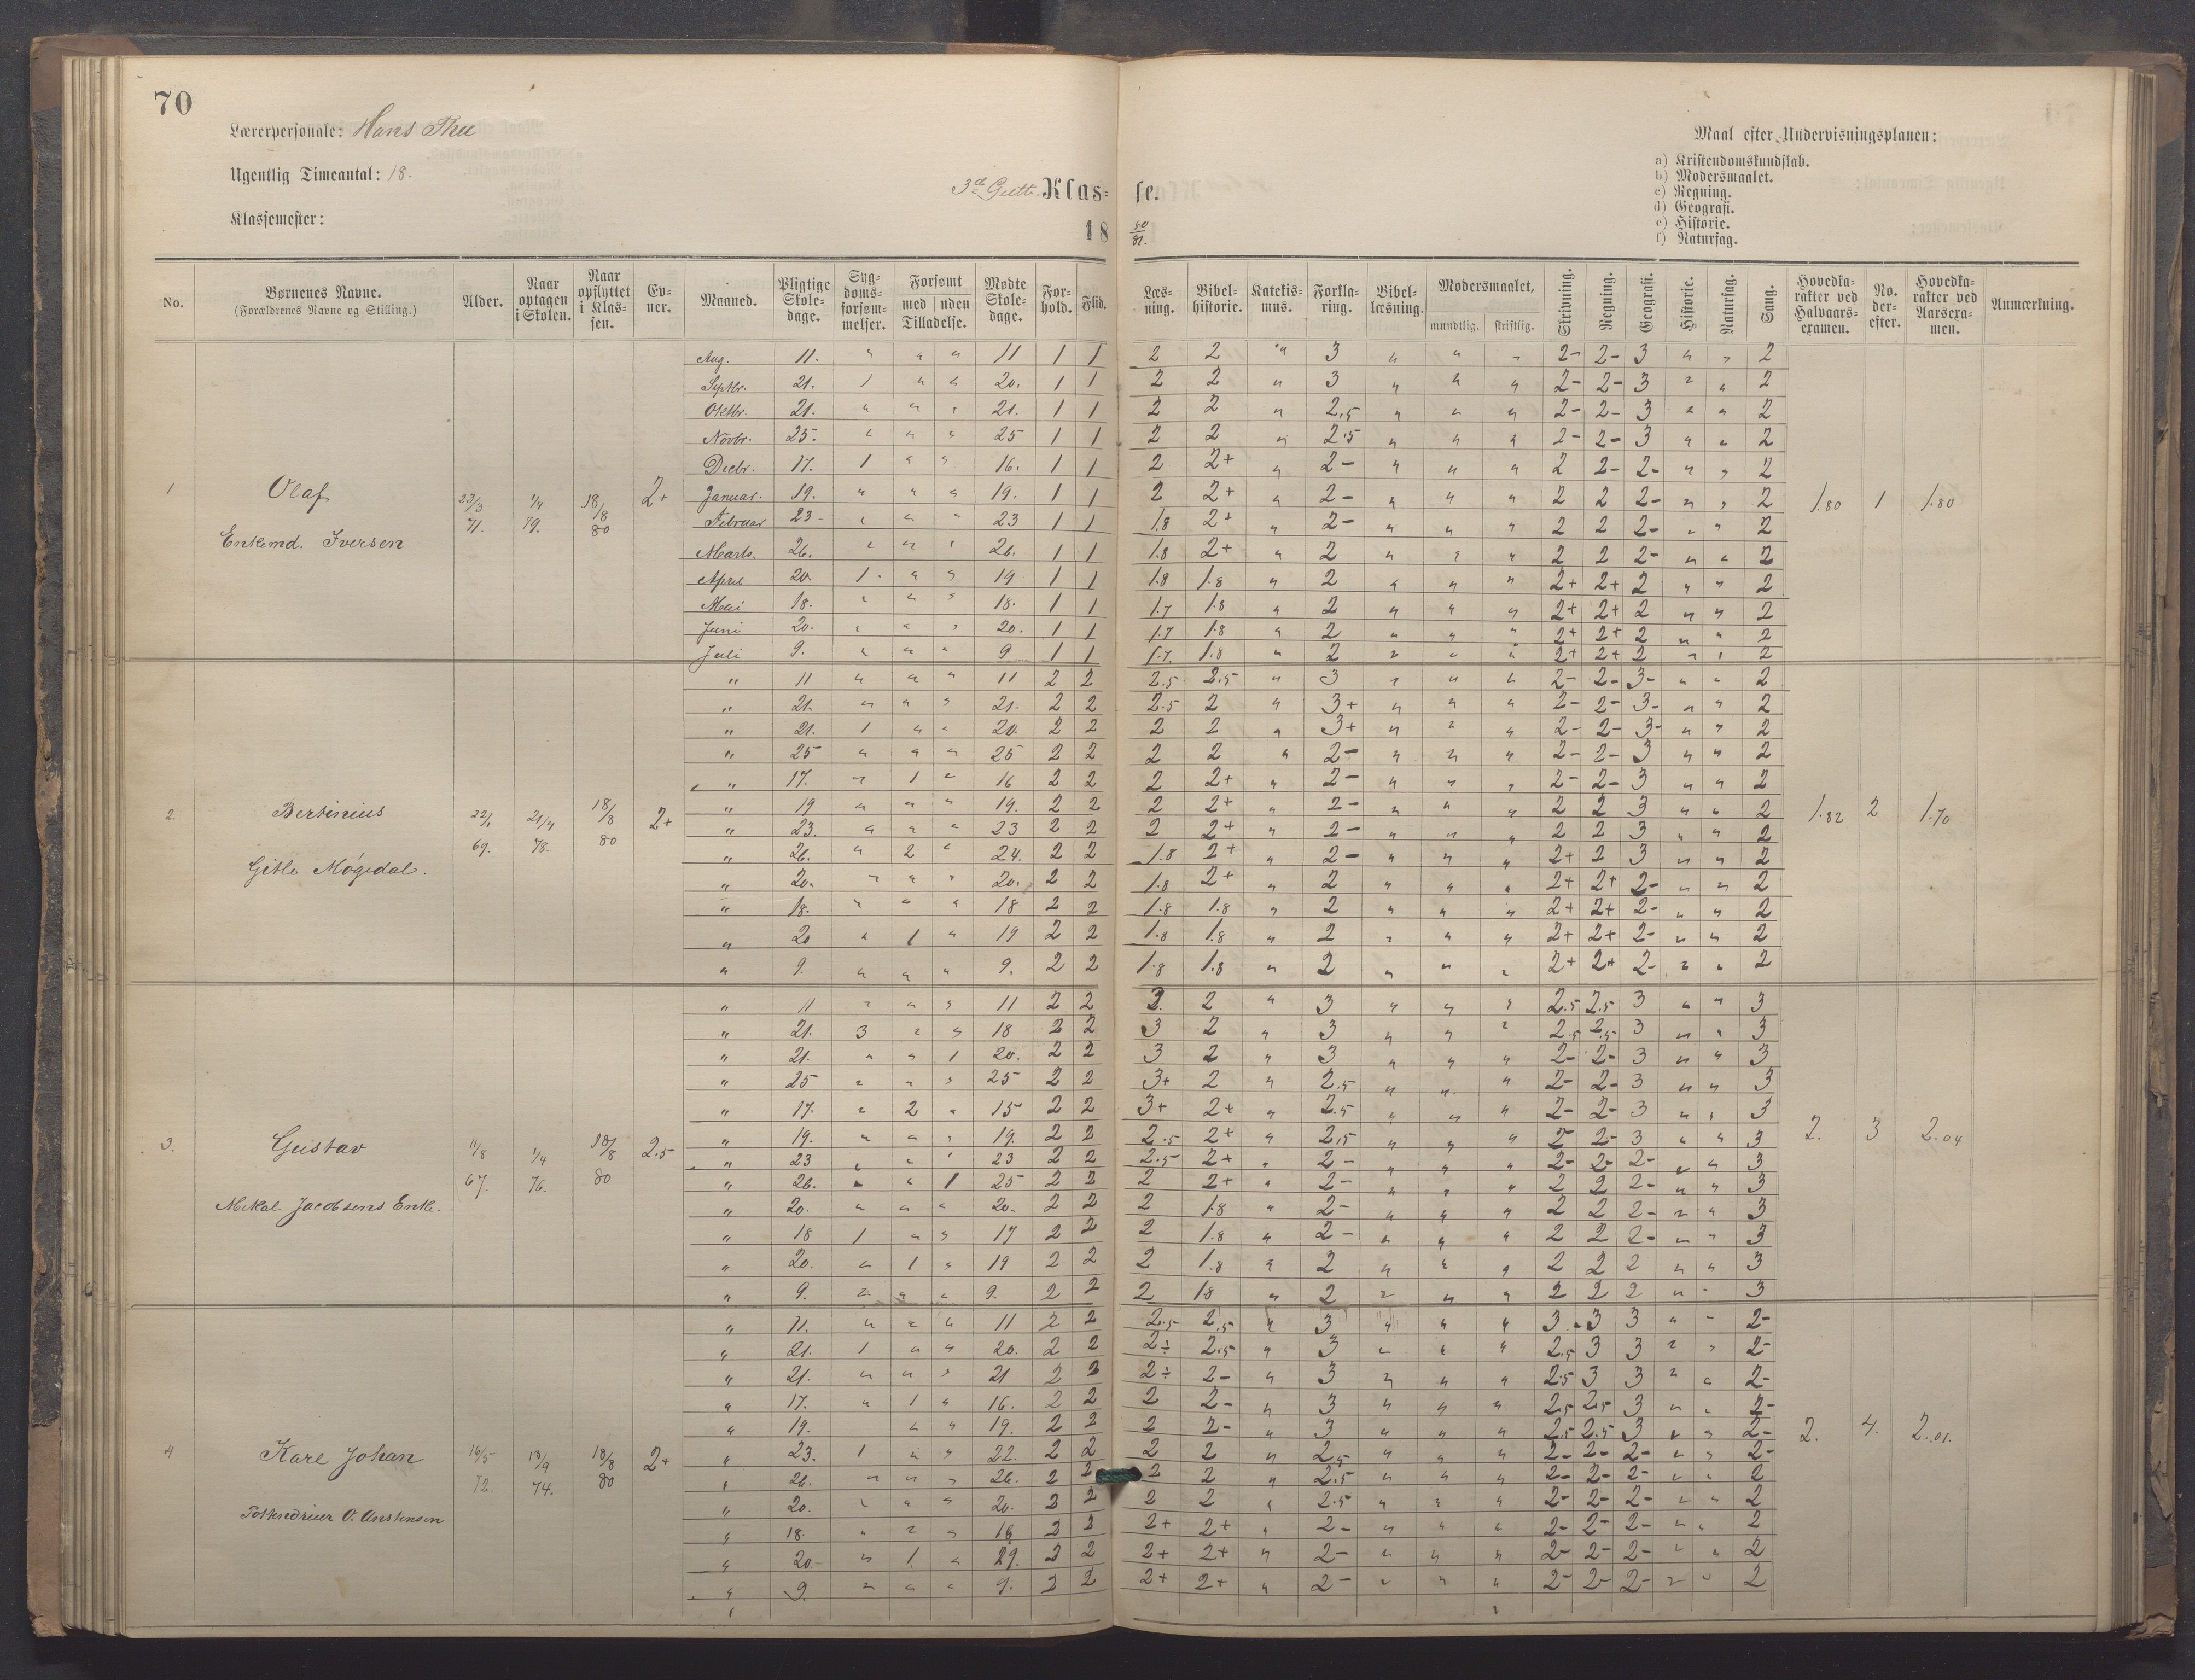 70
Lærerpersonale: Hans Thu
Ugentlig Timeantal: 18.
Klassemester:
3die Gutt. Klas= se.
18 80/81.
Maal efter Undervisningsplanen:
a) Kristendomskundskab.
b) Modersmaalet.
c) Regning.
d) Geografi.
e) Historie.
f) Naturfag.
No. Børnenes Navne. (Forældrenes Navne og Stilling.) Alder. Naar optagen i Skolen. Naar opflyttet i Klas= sen. Ev= ner. Maaned. Pligtige Skole= dage. Syg= doms= forsøm= melser. Forsømt med uden Tilladelse. Mødte Skole= dage. For= hold. Flid. Læs= ning. Bibel= historie. Katekis= mus. Forkla= ring. Bibel= læsning. Modersmaalet, mundtlig. skriftlig. Skrivning. Regning. Geografi. Historie. Naturfag. Sang. Hovedka= rakter ved Halvaars= examen. No. der= efter. Hovedka= rakter ved Aarsexa= men. Anmærkning.
1 Olaf
Enkemd. Iversen
23/3 71. 1/4 79. 18/8 80 2+
Aug. 11. " " " 11 1 1 2 2 " 3 " " " 2- 2- 3 " " 2
Septbr. 21. 1 " " 20. 1 1 2 2 " 3 " " " 2- 2- 3 " " 2
Oktbr. 21. " " " 21. 1 1 2 2 " 2,5 " " " 2- 2- 3 " " 2
Novbr. 25. " " " 25 1 1 2 2 " 2.5 " " " 2- 2- 3 " " 2
Decbr. 17. 1 " " 16. 1 1 2 2+ " 2- " " " 2 2- 2- " " 2
Januar. 19. " " " 19. 1 1 2 2+ " 2- " " " 2 2 2- " " 2
Februar 23- " " " 23 1 1 1.8 2+ " 2- " " " 2 2 2- " " 2
Marts. 26. " " " 26. 1 1 1.8 2+ " 2 " " " 2 2 2- " " 2
April 20. 1. " " 19 1 1 1.8 1.8 " 2 " " " 2+ 2+ 2 " " 2
Mai 18. " " " 18. 1 1 1.7 1.8 " 2 " " " 2+ 2+ 2 " " 2
Juni 20. " " " 20. 1 1 1.7 1.8 " 2 " " " 2+ 2+ 2 " " 2
Juli 9. " " " 9 1 1 1.7. 1.8 " 2 " " " 2+ 2+ 2 " " 2
1.80 1 1.80
2. Bertinius
Gitle Møgedal.
22/1 69. 21/4 78. 18/8 80 2+
" 11 " " " 11 2 2 2.5 2.5 " 3 " " " 2- 2- 3- " " 2
" 21. " " " 21. 2 2 2.5 2 " 3+ " " " 2- 2- 3- " " 2
" 21. 1 " " 20 2 2 2 2 " 3+ " " " 2- 2- 3- " " 2
" 25 " " " 25 2 2 2 2 " 2- " " " 2- 2- 3 " " 2
" 17. " 1 " 16 2 2 2 2+ " 2- " " " 2- 2- 3 " " 2
" 19 " " " 19. 2 2 2 2+ " 2- " " " 2 2 3 " " 2
" 23. " " " 23 2 2 2 2+ " 2- " " " 2 2 3 " " 2
" 26. " 2 " 24. 2 2 1.8 2+ " 2- " " " 2+ 2 3 " " 2
" 20. " " " 20. 2 2 1.8 2+ " 2 " " " 2+ 2+ 2- " " 2
" 18. " " " 18 2 2 1.8 1.8 " 2 " " " 2+ 2+ 2- " " 2
" 20 " 1 " 19 2 2 1.8 1.8 " 2 " " " 2+ 2+ 2- " " 2
" 9. " " " 9. 2 2 1.8 1.8 " 2 " " " 2+ 2+ 2- " " 2
1.82 2 1.70
3. Gustav
Mikal Jacobsens Enke.
11/8 67. 1/4 76. 18/8 80 2.5
" 11 " " " 11 2 2 3. 2 " 3 " " " 2.5 2.5 3 " " 3
" 21. 3 " " 18 2 2 3 2 " 3 " " " 2.5 2.5 3 " " 3
" 21. " " 1 20. 2 2 3 2 " 3 " " " 2- 2- 3 " " 3
" 25 " " " 25 2 2 3+ 2 " 2.5 " " " 2- 2- 3 " " 3
" 17. " 2 " 15 2 2 3+ 2+ " 2.5 " " " 2- 2- 3 " " 3
" 19. " " " 19. 2 2 2.5 2+ " 2,5 " " " 2- 2- 3 " " 3
" 23 " " " 23 2 2 2.5- 2+ " 2- " " " 2- 2- 2- " " 3
" 26. " " 1 25 2 2 2 2+ " 2- " " " 2 2 2- " " 3
" 20. " " " 20. 2 2 2 1.8 " 2- " " " 2 2 2- " " 3
" 18 1 " " 17 2 2 2 1.8 " 2- " " " 2 2 2- " " 3
" 20. " 1 " 19 2 2 2 1.8 " 2 " " " 2 2 2 " " 3
" 9. " " " 9. 2 2 2 18 " 2 " " " 2 2 2 " " 3
2. 3 2.04
4 Karl Johan
O.
16/5 72. 13/9 74. 18/8 80 2+
" 11. " " " 11 2 2 2.5 2.5 " 3 " " " 3 3 3 " " 2-
" 21. 1 " " 20. 2 2 2÷ 2.5 " 3 " " " 2.5 3 3 " " 2-
" 21. " " " 21 2 2 2÷ 2- " 3 " " " 2.5 3 3 " " 2-
" 17. " 1 " 16. 2 2 2 2- " 3 " " " 2.5 2.5 3 " " 2-
" 19. " " 19. 2 2 2 2- " 3 " " " 2.5 2.5 3 " " 2-
" 23. 1 " " 22. 2 2 2 2 " 2.5 " " " 2- 2- 2- " " 2-
" 26. " " " 26. 2 2 2 2 " 2.5 " " " 2- 2- 2- " " 2
" 20. " " " 20. 2 2 2 2 " 2.5 " " " 2- 2- 2- " " 2
" 18. " 2 " 16 2 2 2+ 2+ " 2- " " " 2- 2- 2- " " 2
" 20- " 1. " 2 2 2+ 2+ " 2- " " " 2- 2- 2- " " 2
" 9. " " " 9. 2 2 2+ 2+ " 2- " " " 2- 2- 2- " " 2
2. 4. 2.01.